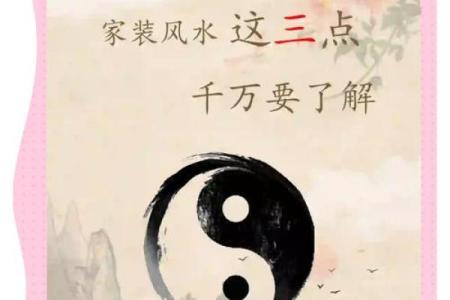 家装风水这三点
千万要了解